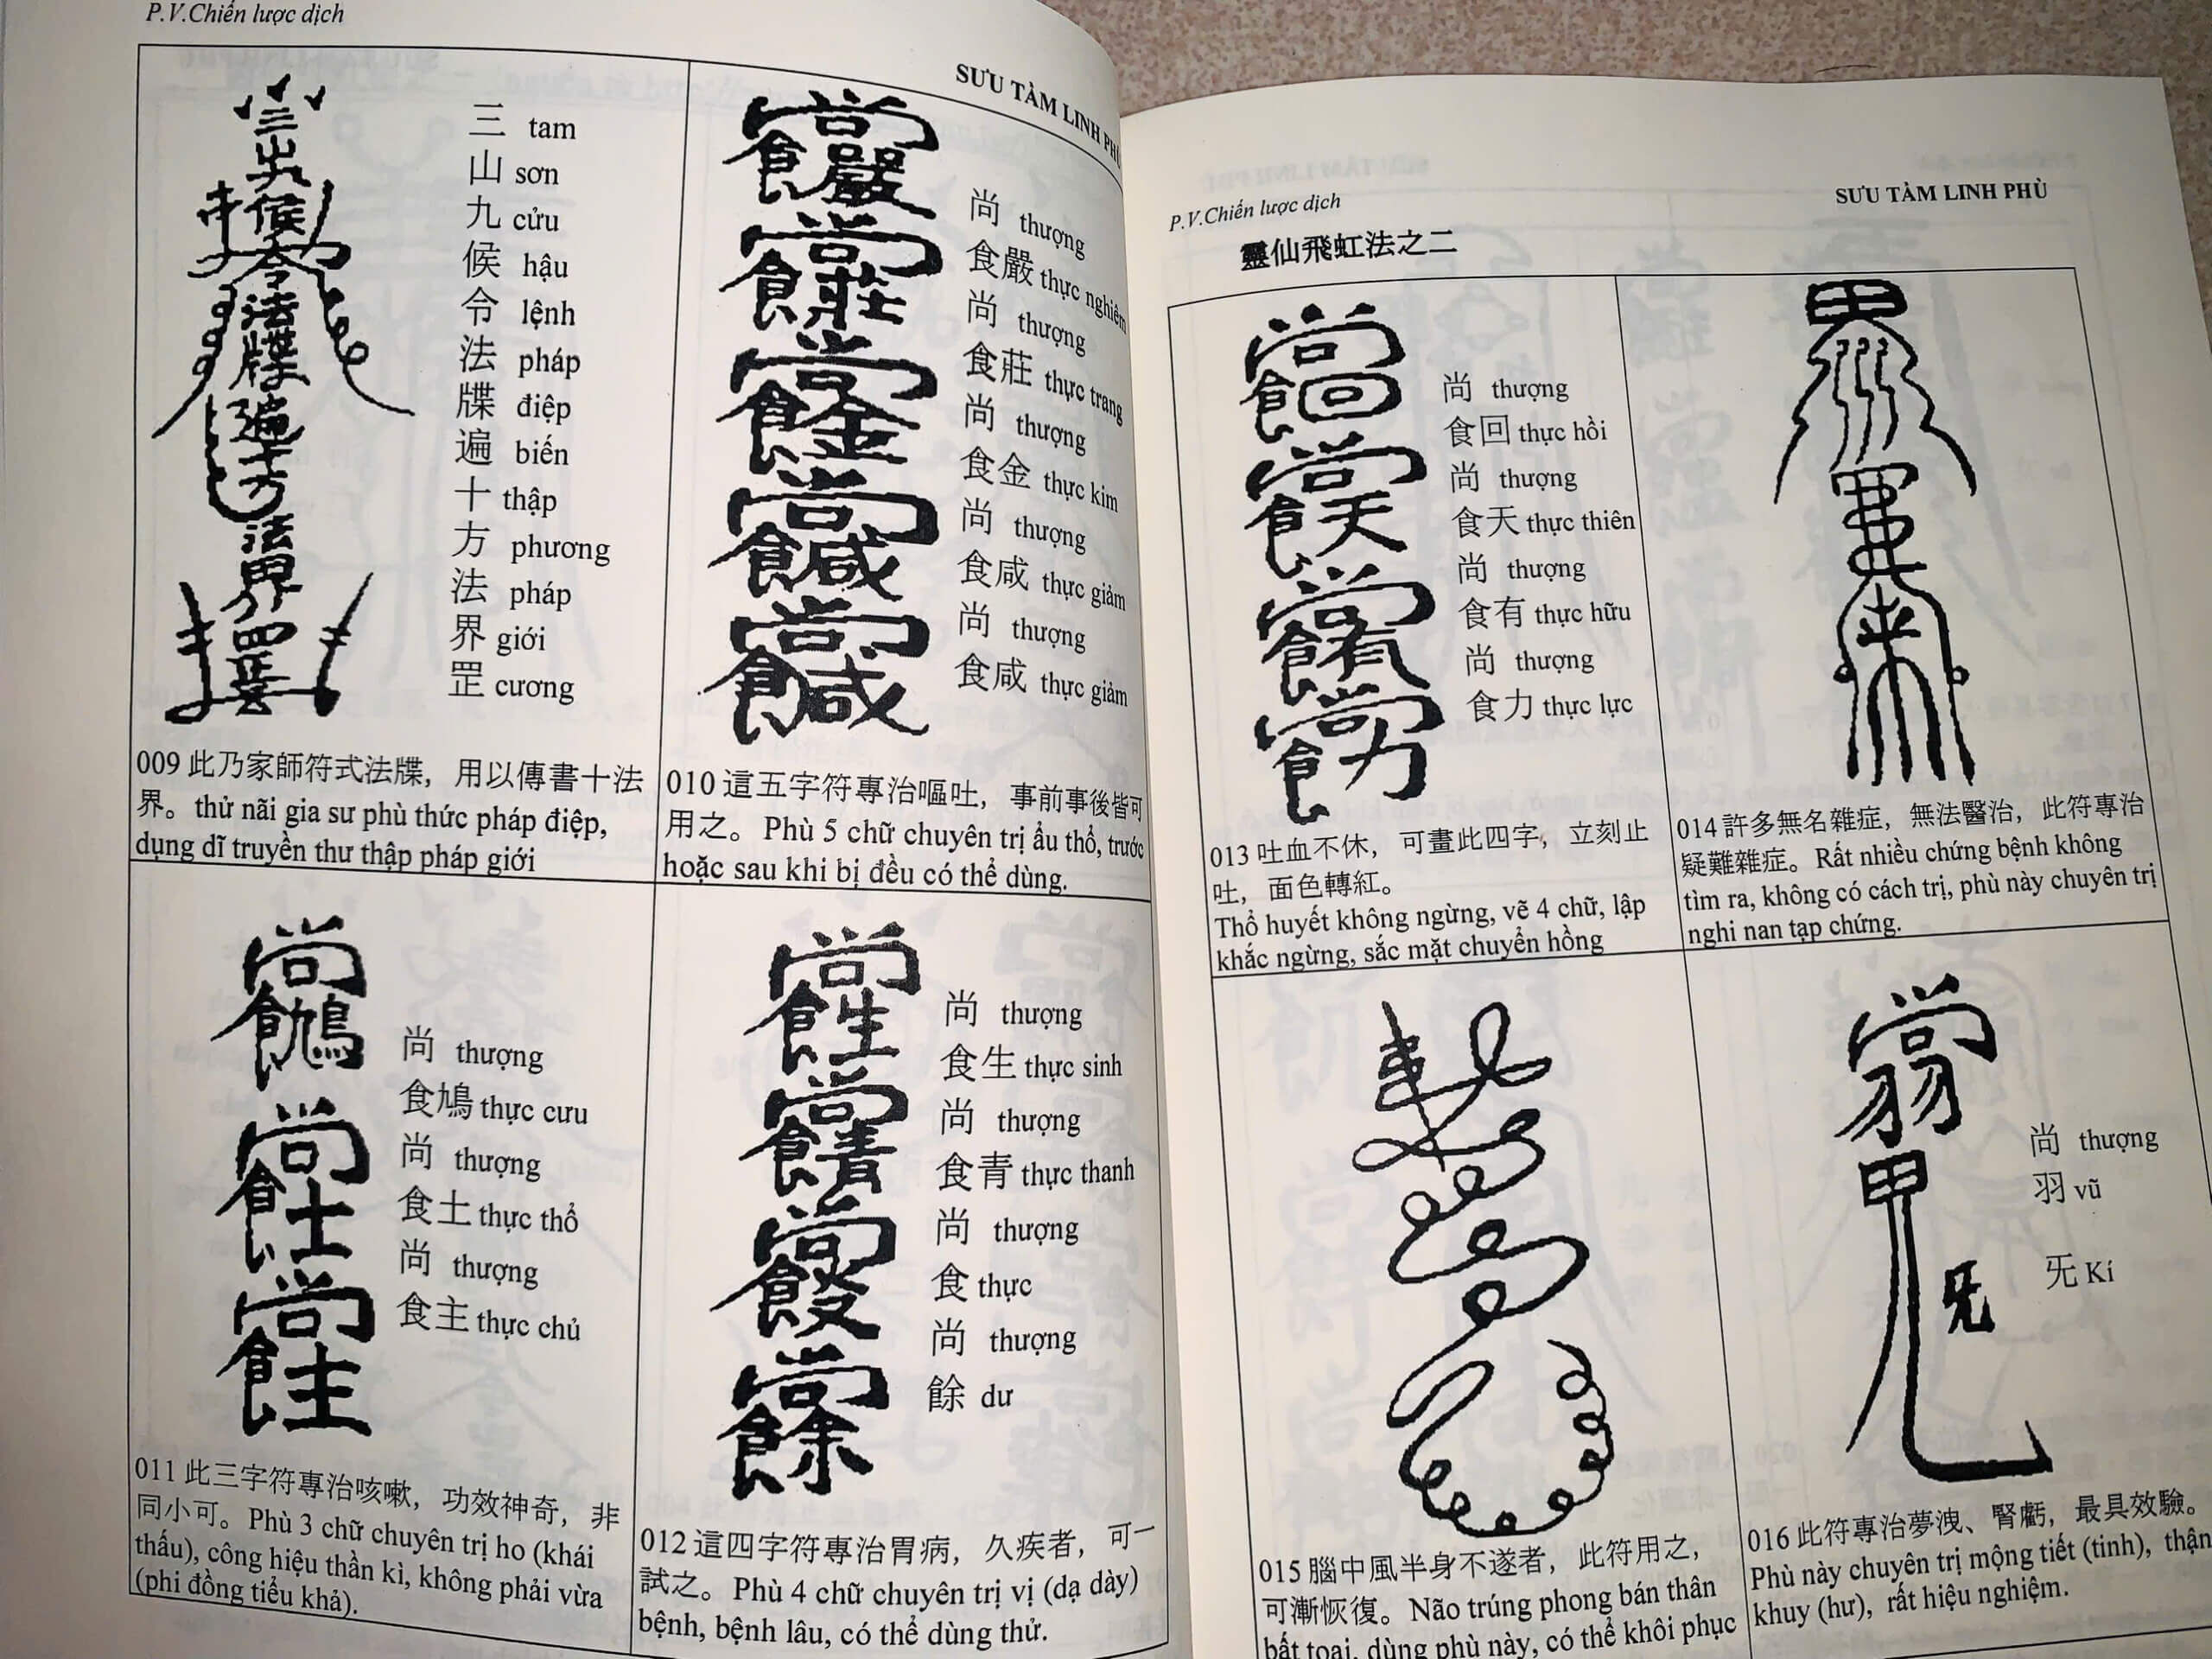 P.V.Chiến lược dịch
SƯU TẦM LINH PHÙ
三 tam
山 sơn
九 cửu
候 hậu
令 lệnh
法 pháp
牒 điệp
遍 biến
十 thập
方 phương
法 pháp
界 giới
罡 cương
009 此乃家師符式法牒，用以傳書十法
界。thử nãi gia sư phù thức pháp điệp,
dụng dĩ truyền thư thập pháp giới
尚 thượng
食嚴 thực nghiêm
尚 thượng
食莊 thực trang
尚 thượng
食金 thực kim
尚 thượng
食咸 thực giảm
尚 thượng
食咸 thực giảm
010 這五字符專治嘔吐，事前事後皆可
用之。Phù 5 chữ chuyên trị ẩu thổ, trước
hoặc sau khi bị đều có thể dùng.
尚 thượng
食鳩 thực cưu
尚 thượng
食土 thực thổ
尚 thượng
食主 thực chủ
011 此三字符專治咳嗽，功效神奇，非
同小可。Phù 3 chữ chuyên trị ho (khái
thấu), công hiệu thần kì, không phải vừa
(phi đồng tiểu khả).
尚 thượng
食生 thực sinh
尚 thượng
食青 thực thanh
尚 thượng
食 thực
尚 thượng
餘 dư
012 這四字符專治胃病，久疾者，可一
試之。Phù 4 chữ chuyên trị vị (dạ dày)
bệnh, bệnh lâu, có thể dùng thử.
P.V.Chiến lược dịch
SƯU TẦM LINH PHÙ
靈仙飛虹法之二
尚 thượng
食回 thực hồi
尚 thượng
食天 thực thiên
尚 thượng
食有 thực hữu
尚 thượng
食力 thực lực
013 吐血不休，可畫此四字，立刻止
吐，面色轉紅。
Thổ huyết không ngừng, vẽ 4 chữ, lập
khắc ngừng, sắc mặt chuyển hồng
014 許多無名雜症，無法醫治，此符專治
疑難雜症。Rất nhiều chứng bệnh không
tìm ra, không có cách trị, phù này chuyên trị
nghi nan tạp chứng.
015 腦中風半身不遂者，此符用之，
可漸恢復。Não trúng phong bán thân
bất toại, dùng phù này, có thể khôi phục
尚 thượng
羽 vũ
旡 Kí
016 此符專治夢洩、腎虧，最具效驗。
Phù này chuyên trị mộng tiết (tinh), thận
khuy (hư), rất hiệu nghiệm.